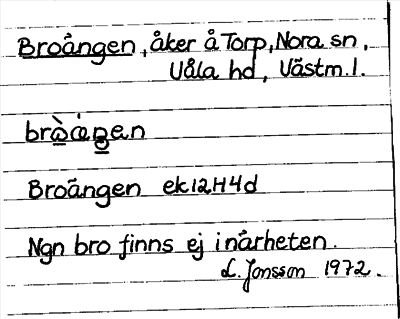 Broängen, åker å Torp, Nora sn,
Våla hd, Västm.l.
brò̲áṉen
Broängen ek12H4d
Ngn bro finns ej i närheten.
L. Jonsson 1972.